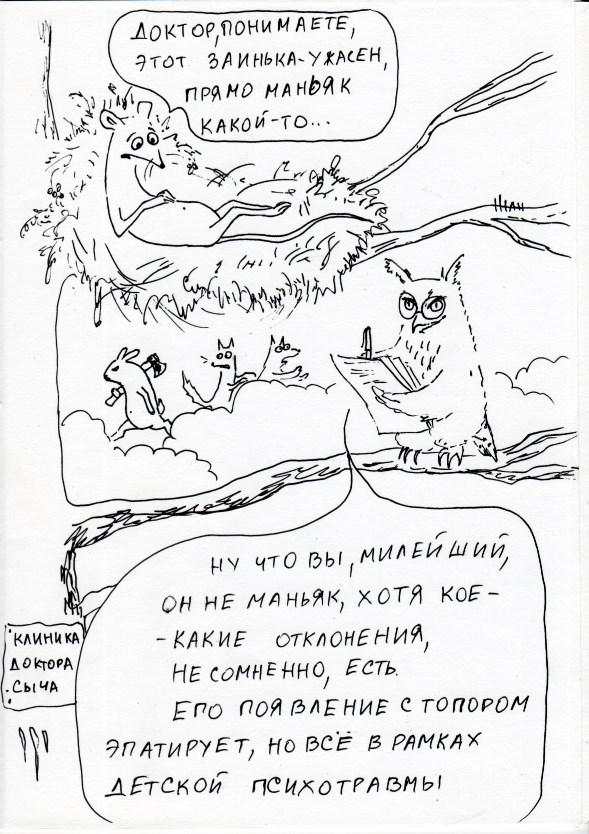 ДОКТОР, ПОНИМАЕТЕ,
ЭТОТ ЗАИНЬКА-УЖАСЕН,
ПРЯМО МАНЬЯК
КАКОЙ-ТО...
НУ ЧТО ВЫ, МИЛЕЙШИЙ,
ОН НЕ МАНЬЯК, ХОТЯ КОЕ-
-КАКИЕ ОТКЛОНЕНИЯ,
НЕСОМНЕННО, ЕСТЬ.
ЕГО ПОЯВЛЕНИЕ С ТОПОРОМ
ЭПАТИРУЕТ, НО ВСЁ В РАМКАХ
ДЕТСКОЙ ПСИХОТРАВМЫ
КЛИНИКА
ДОКТОРА
СЫЧА